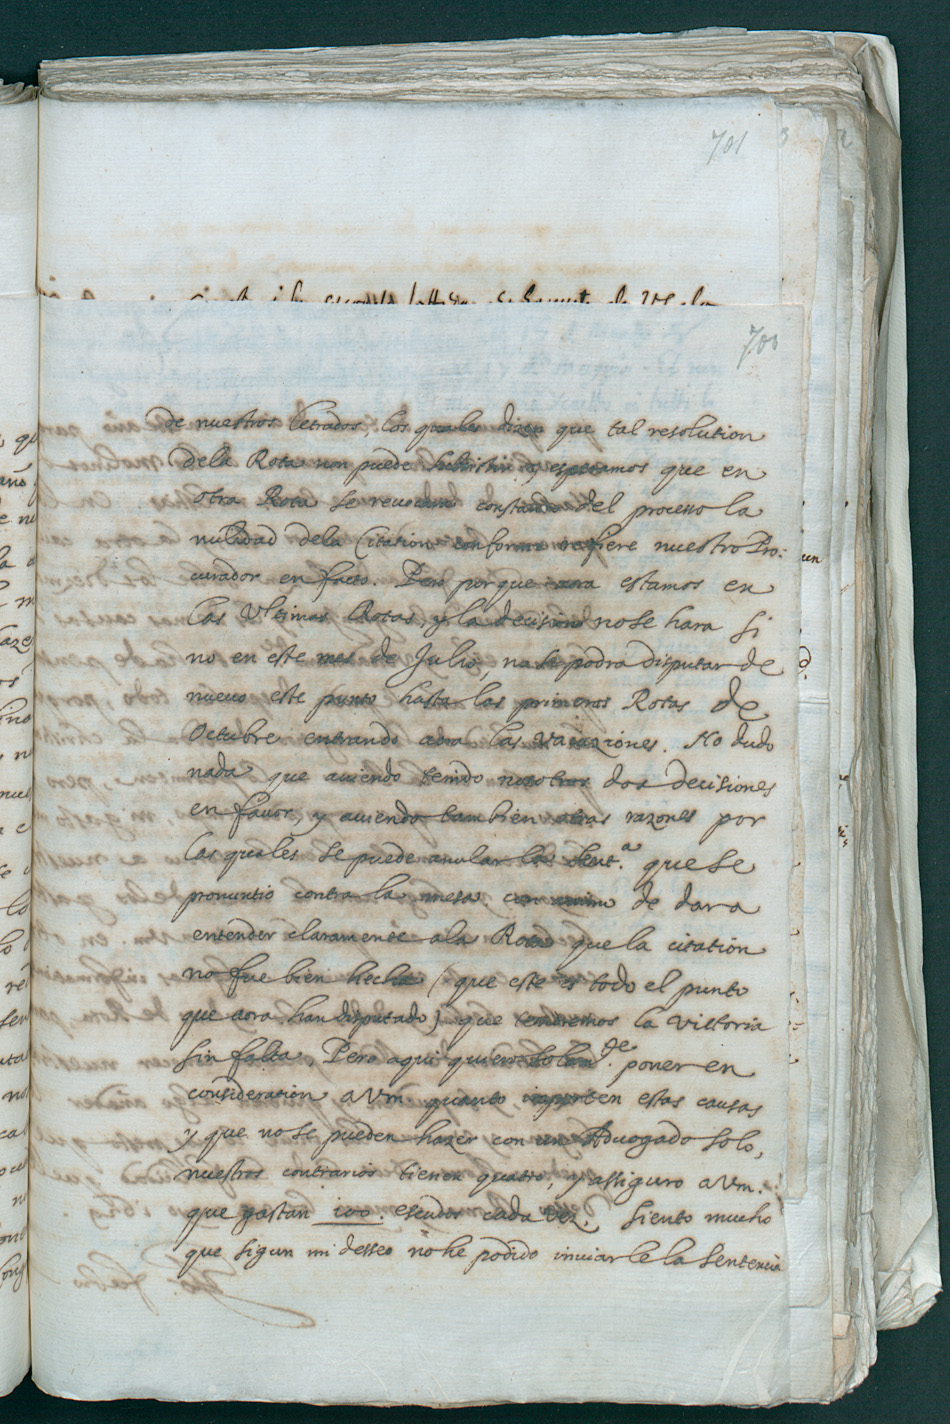 701
700
de nuestros letrados, los quales dizen que tal resolution
dela Rota non puede subsistir y esperamos que en
otra Rota se reuocara constando del processo la
nulidad dela Citation conforme refiere nuestro Pro-
curador en facto. Pero porque aora estamos en
las Vltimas Rotas, y la decision no se hara si
no en este mes de Julio, no se podra disputar de
nueuo este punto hasta las primeras Rotas de
Octubre entrando aora las Vacaziones. No dudo
nada que auiendo tenido nosotros dos decisiones
en fauor, y auiendo tambien otras razones por
las quales se puede anular la Sent.ª que se
pronuntio contra la mesa, con animo de dar a
entender claramente a la Rota que la citation
no fue bien hecha (que este es todo el punto
que aora han disputado) que tendremos la Victoria
sin falta. Pero aqui quiero solam.te poner en
consideration a Vm quanto importen estas causas
y que no se pueden hazer con un Aduogado solo,
nuestros contrarios tienen quatro, y assiguro a Vm.
que gastan 100. escudos cada Vez. Siento mucho
que sigun mi desseo no he podido inuiarle la Sentencia